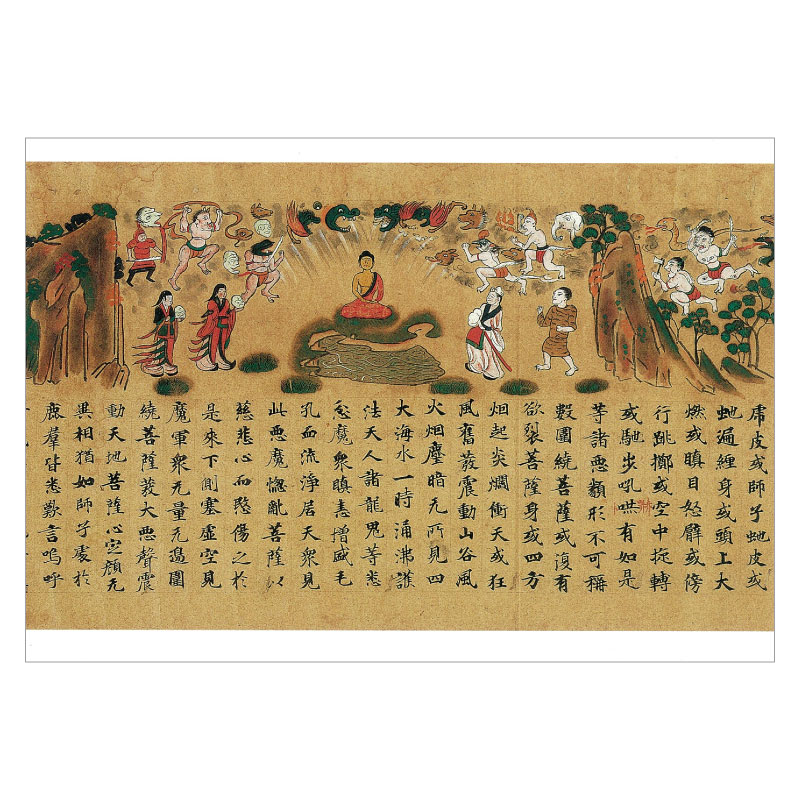 虎皮或師子虵皮或
虵遍纏身或頭上大
燃或瞋目怒臂或傍
行跳擲或空中旋轉
或馳步吼嚇有如是
等諸惡類形不可稱
數圍繞菩薩或復有
欲裂菩薩身或四方
烟起炎爓衝天或狂
風奮發震動山谷風
火烟塵暗无所見四
大海水一時涌沸護
法天人諸龍鬼等悉
忿魔衆瞋恚增盛毛
孔血流淨居天衆見
此悪魔惱亂菩薩以
慈悲心而愍傷之於
是來下側塞虛空見
魔軍衆无量无邊圍
繞菩薩發大悪聲震
動天地菩薩心定顔无
異相猶如師子處於
鹿羣皆悉歎言嗚呼